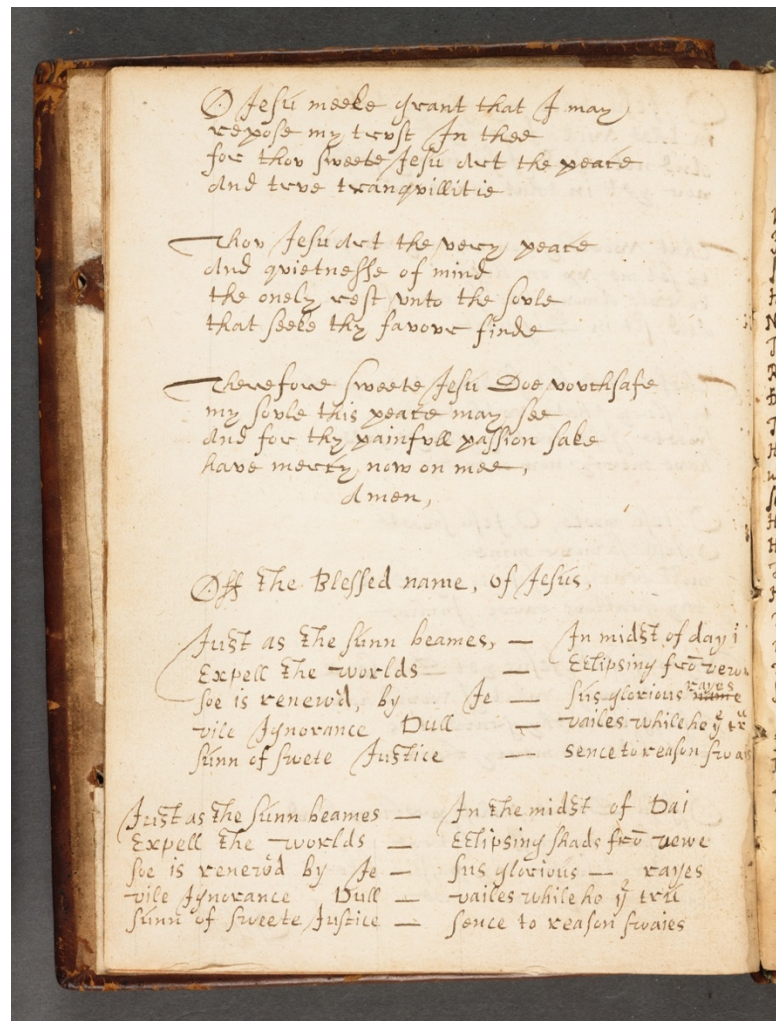 O Jesu meeke grant that I may
repose my trvst In thee
for thov sweete Jesu Art the peace
And trve tranqvillitie
Thov Jesu Art the very peace
And qvietnesse of mind
the onely rest vnto the sovle
that seeke thy favovr finde
Therefore sweete Jesu Doe vovchsafe
my sovle this peace may see
And for thy painfvll passion sake
have mercy now on mee,
Amen,
Off The Blessed name, of Jesus,
Just as The sunn beames, — In midst of day
Expell The worlds — — Ecclipsing frō
soe is renewd, by Je — sus glorious name rayes
vile Ignorance Dull — vailes while he yͤ
sunn of swete Justice — sence to reason
Just as The sunn beames — In The midst of Dai
Expell The worlds — Ecclipsing shads frō vewe
soe is renewd by Je — sus glorious — rayes
vile Ignorance Dull — vailes while he yͤ tru
sunn of sweete Justice — sence to reason swaies